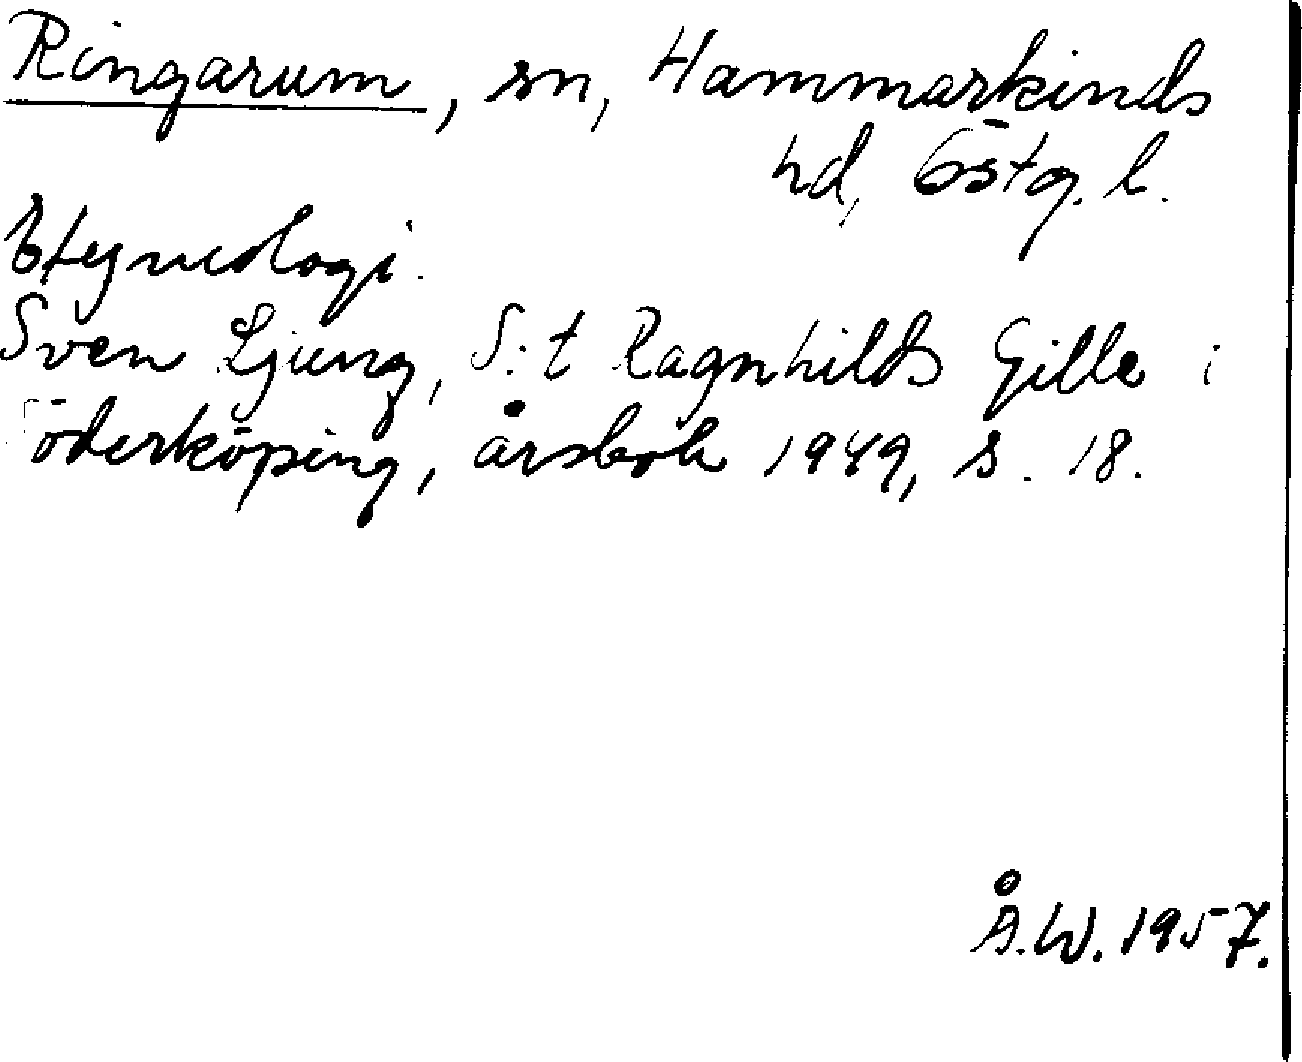 Ringarum, sn, Hammarkinds
hd, Östg. l.
Etymologi.
Sven Ljung, S:t Ragnhilds Gille i
Söderköping, årsbok 1949, s. 18.
Å.W. 1957.